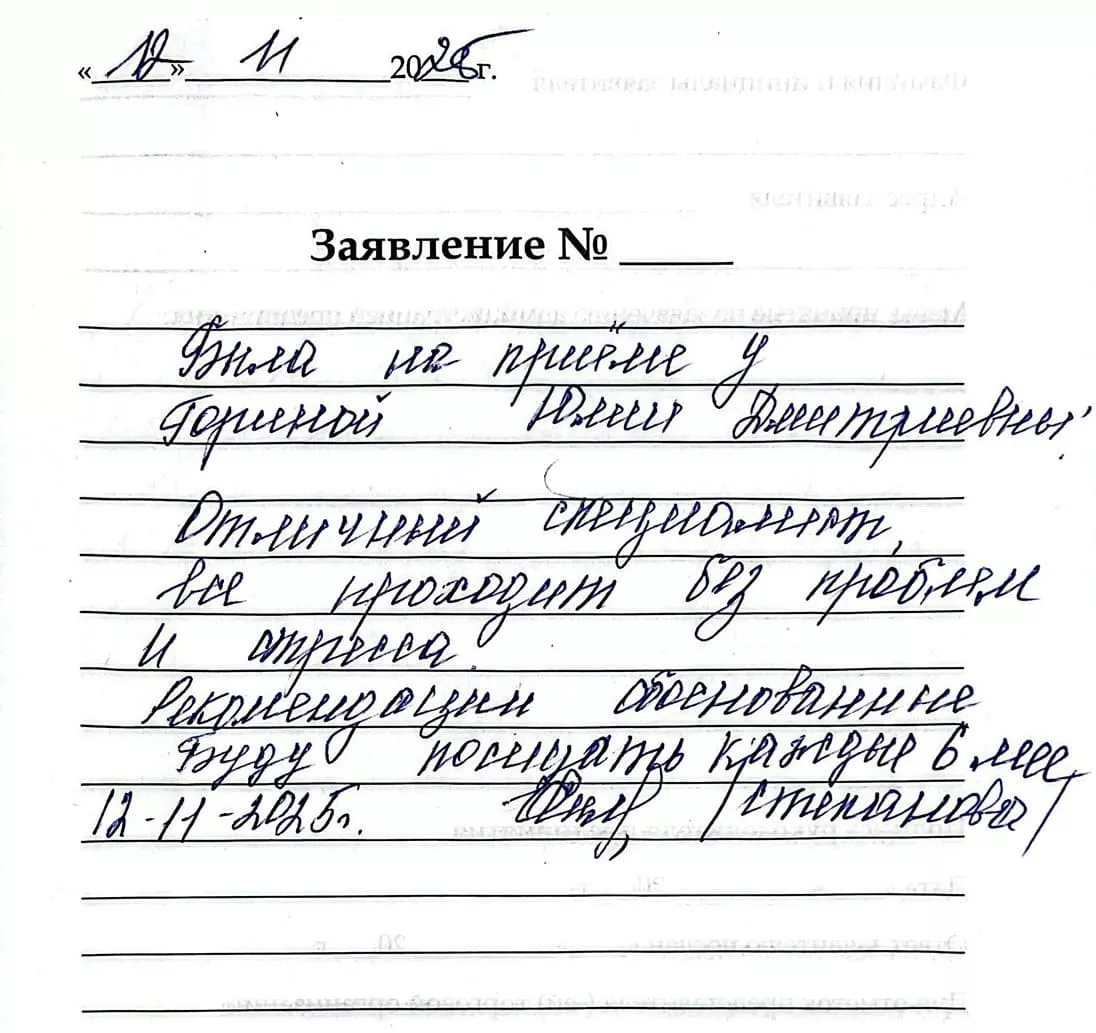 «12» 11 2025 г.
Заявление № ____
Была на приёме у
Гориной Юлии Дмитриевны!
Отличный специалист,
все проходит без проблем
и стресса.
Рекомендации обоснованные
Буду посещать каждые 6 мес,
12-11-2025г. /Степанова/